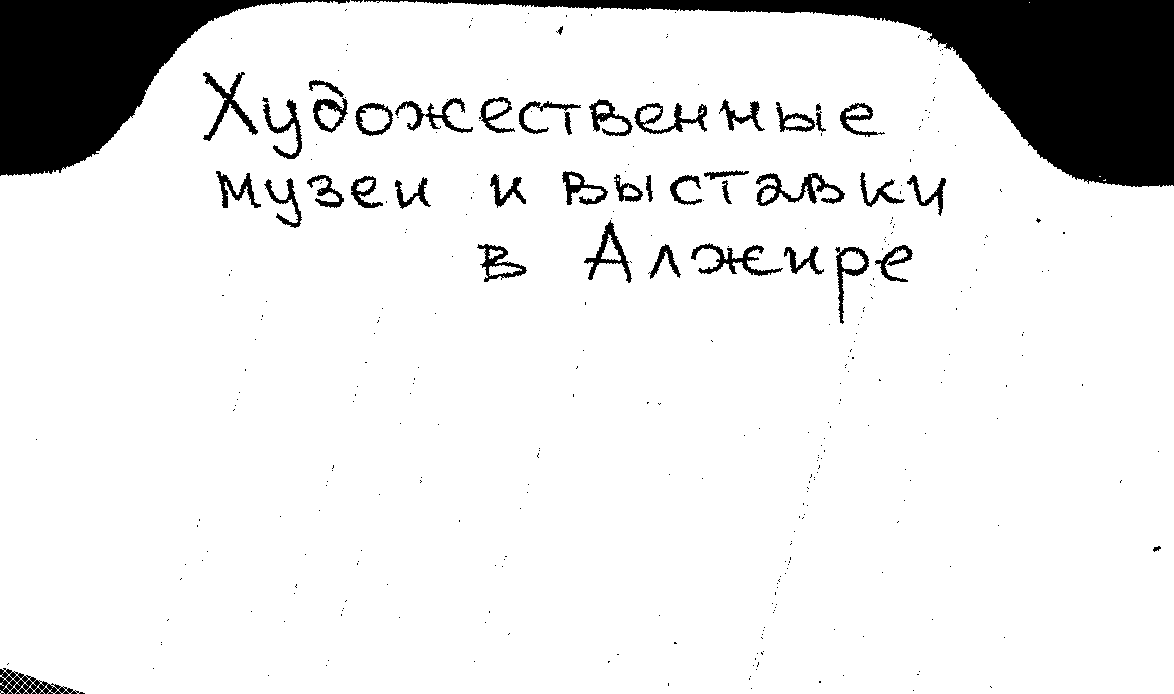 Художественные
музеи и выставки
в Алжире